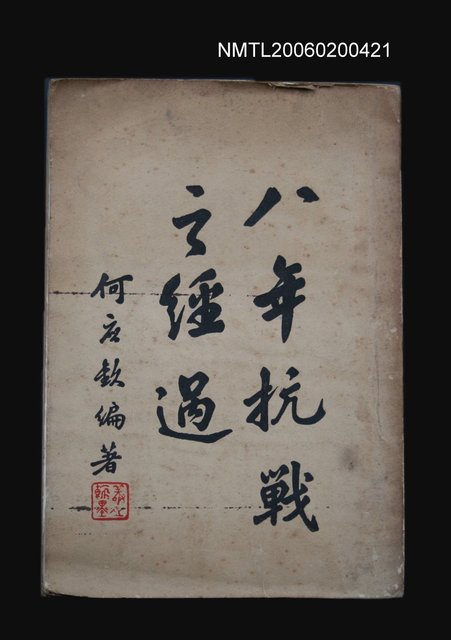 NMTL20060200421
八年抗戰
之經過
何应欽編著